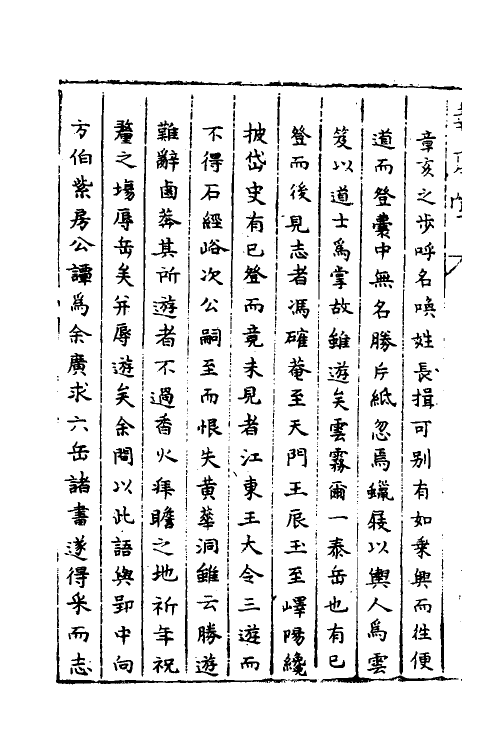 章亥之步呼名喚姓長揖可别有如乗興而徃便
道而登囊中無名勝片紙忽焉蠟屐以輿人爲雲
笈以道士爲掌故雖遊矣雲霧爾一泰岳也有已
登而後見志者馮確菴至天門王辰玉至嶧陽纔
披岱史有已登而竟未見者江東王大令三遊而
不得石經峪次公嗣至而恨失黄華洞雖云勝遊
難辭鹵莽其所遊者不過香火拜瞻之地祈年祝
釐之塲辱岳矣并辱遊矣余間以此語與郢中向
方伯紫房公譚爲余廣求六岳諸書遂得采而志